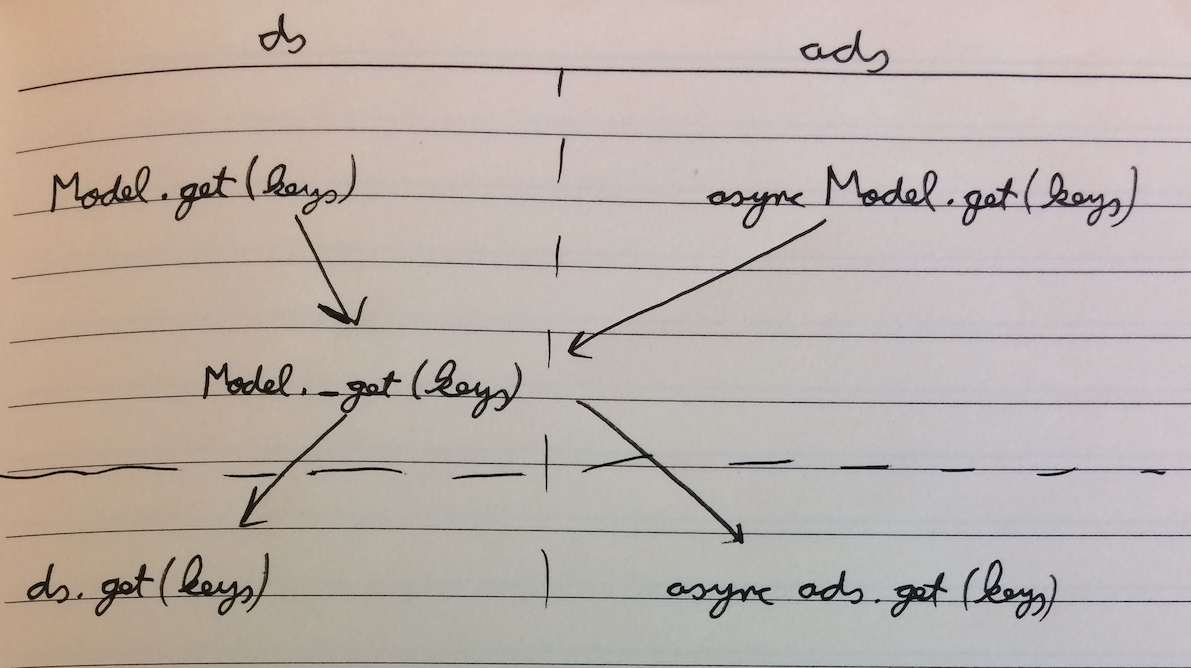 ds ads
Model.get(keys) async Model.get(keys)
Model._get(keys)
ds.get(keys) async ads.get(keys)